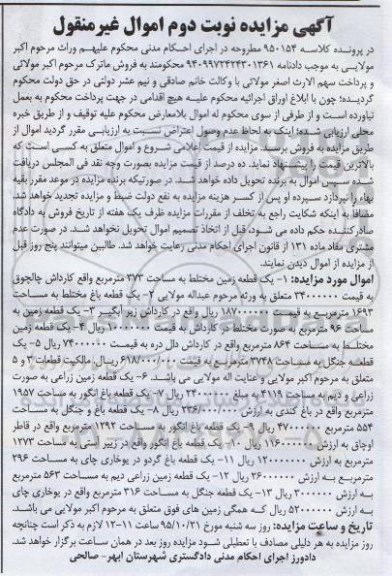 آگهی مزایده نوبت دوم اموال غیرمنقول
در پرونده کلاسه ۹۵۰۱۵۴ مطروحه در اجرای احکام مدنی محکوم علیهم وراث مرحوم اکبر
مولایی به موجب دادنامه ۹۴۰۹۹۷۲۴۲۴۳۰۱۳۶۱ محکومند به فروش ماترک مرحوم اکبر مولائی
و پرداخت سهم الارث اصغر مولائی با وکالت خانم صادقی و نیم عشر دولتی در حق دولت محکوم
گردیده؛ چون با ابلاغ اوراق اجرائیه محکوم علیه هیچ اقدامی در جهت پرداخت محکوم به بعمل
نیاورده است و از طرفی از سوی محکوم له اموال بلامعارض محکوم علیه توقیف و از طریق خبره
محلی ارزیابی شده؛ اینک به لحاظ عدم وصول اعتراض نسبت به ارزیابی مقرر گردید اموال از
طریق مزایده به فروش برسد. مزایده از قیمت اعلامی شروع و اموال متعلق به کسی است که
بالاترین قیمت را پیشنهاد نماید. ده درصد از قیمت مزایده بصورت وجه نقد فی المجلس دریافت
شده سپس اموال به برنده تحویل داده خواهد شد. در صورتیکه برنده مزایده در موعد مقرر بقیه
بهاء را نپردازد سپرده او پس از کسر هزینه مزایده به نفع دولت ضبط و مزایده تجدید خواهد شد.
مضافا به اینکه شکایت راجع به تخلف از مقررات مزایده ظرف یک هفته از تاریخ فروش به دادگاه
صادرکننده حکم داده می شود. قبل از اتخاذ تصمیم اموال تحویل نخواهد شد. در صورت عدم
مشتری مفاد ماده ۱۳۱ از قانون اجرای احکام مدنی رعایت خواهد شد. طالبین میتوانند پنج روز قبل
از مزایده از اموال دیدن نمایند.
اموال مورد مزایده: ۱- یک قطعه زمین مختلط به مساحت ۳۷۳ مترمربع واقع کارداش چالچوق
به قیمت ۳۴۰۰۰۰۰۰ متعلق به ورثه مرحوم عبداله مولایی ۲- یک قطعه باغ مختلط به مساحت
۱۶۹۳ مترمربع به قیمت ۱۸۷۰۰۰۰۰۰ ریال واقع در کارداش زیر آبگیر ۳- یک قطعه زمین به
مساحت ۹۶ مترمربع به صورت مختلط در کارداش به قیمت ۱۰۰۰۰۰۰۰ ریال ۴- یک قطعه زمین
مختلط به مساحت ۸۶۴ مترمربع واقع در کارداش دال دره به قیمت ۷۴۰۰۰۰۰۰ ریال ۵- یک
قطعه جنگل به مساحت ۳۷۴۸ مترمربع به قیمت ۶۱۸/۰۰۰/۰۰۰ ریال. مالکیت قطعات ۳ و ۵
متعلق به مرحوم اکبر مولایی و عنایت اله مولایی می باشد. ۶- یک قطعه زمین زراعی به صورت
زراعی و دیم به مساحت ۴۱۱۹ به مبلغ ۲۴۰۰۰۰۰۰ ریال ۷- یک قطعه باغ انگور به مساحت ۱۹۵۷
مترمربع واقع در باغ کندی به ارزش ۲۳۶/۰۰۰/۰۰۰ ریال ۸- یک قطعه باغ و جنگل به مساحت
۵۵۴ مترمربع ۴۷۰۰۰۰۰۰ ریال ۹- یک قطعه باغ انگور به مساحت ۱۲۹۲ مترمربع واقع در قاطر
اوچاق به ارزش ۱۱۶۰۰۰۰۰۰ ریال ۱۰- یک قطعه باغ انگور واقع در زیر آبستی به مساحت ۱۲۷۳
مترمربع به ارزش ۱۲۰۰۰۰۰۰۰ ریال ۱۱- یک قطعه باغ گردو در یوخاری چای به مساحت ۲۹۶
مترمربع به ارزش ۲۶۰۰۰۰۰۰ ریال ۱۲- یک قطعه زمین زراعی دیم به مساحت ۵۶۳ مترمربع
به ارزش ۳۰۰۰۰۰۰ ریال ۱۳- یک قطعه جنگل به مساحت ۳۱۶ مترمربع واقع در یوخاری چای
به ارزش ۵۲۰۰۰۰۰۰ ریال که همگی زمین های فوق متعلق به مرحوم اکبر مولایی می باشد.
تاریخ و ساعت مزایده: روز سه شنبه مورخ ۹۵/۱۰/۲۱ ساعت ۱۱-۱۲ لازم به ذکر است چنانچه
روز مزایده به هر دلیلی مصادف با تعطیلی شود مزایده روز بعد در همان ساعت برگزار خواهد شد.
دادورز اجرای احکام مدنی دادگستری شهرستان ابهر- صالحی